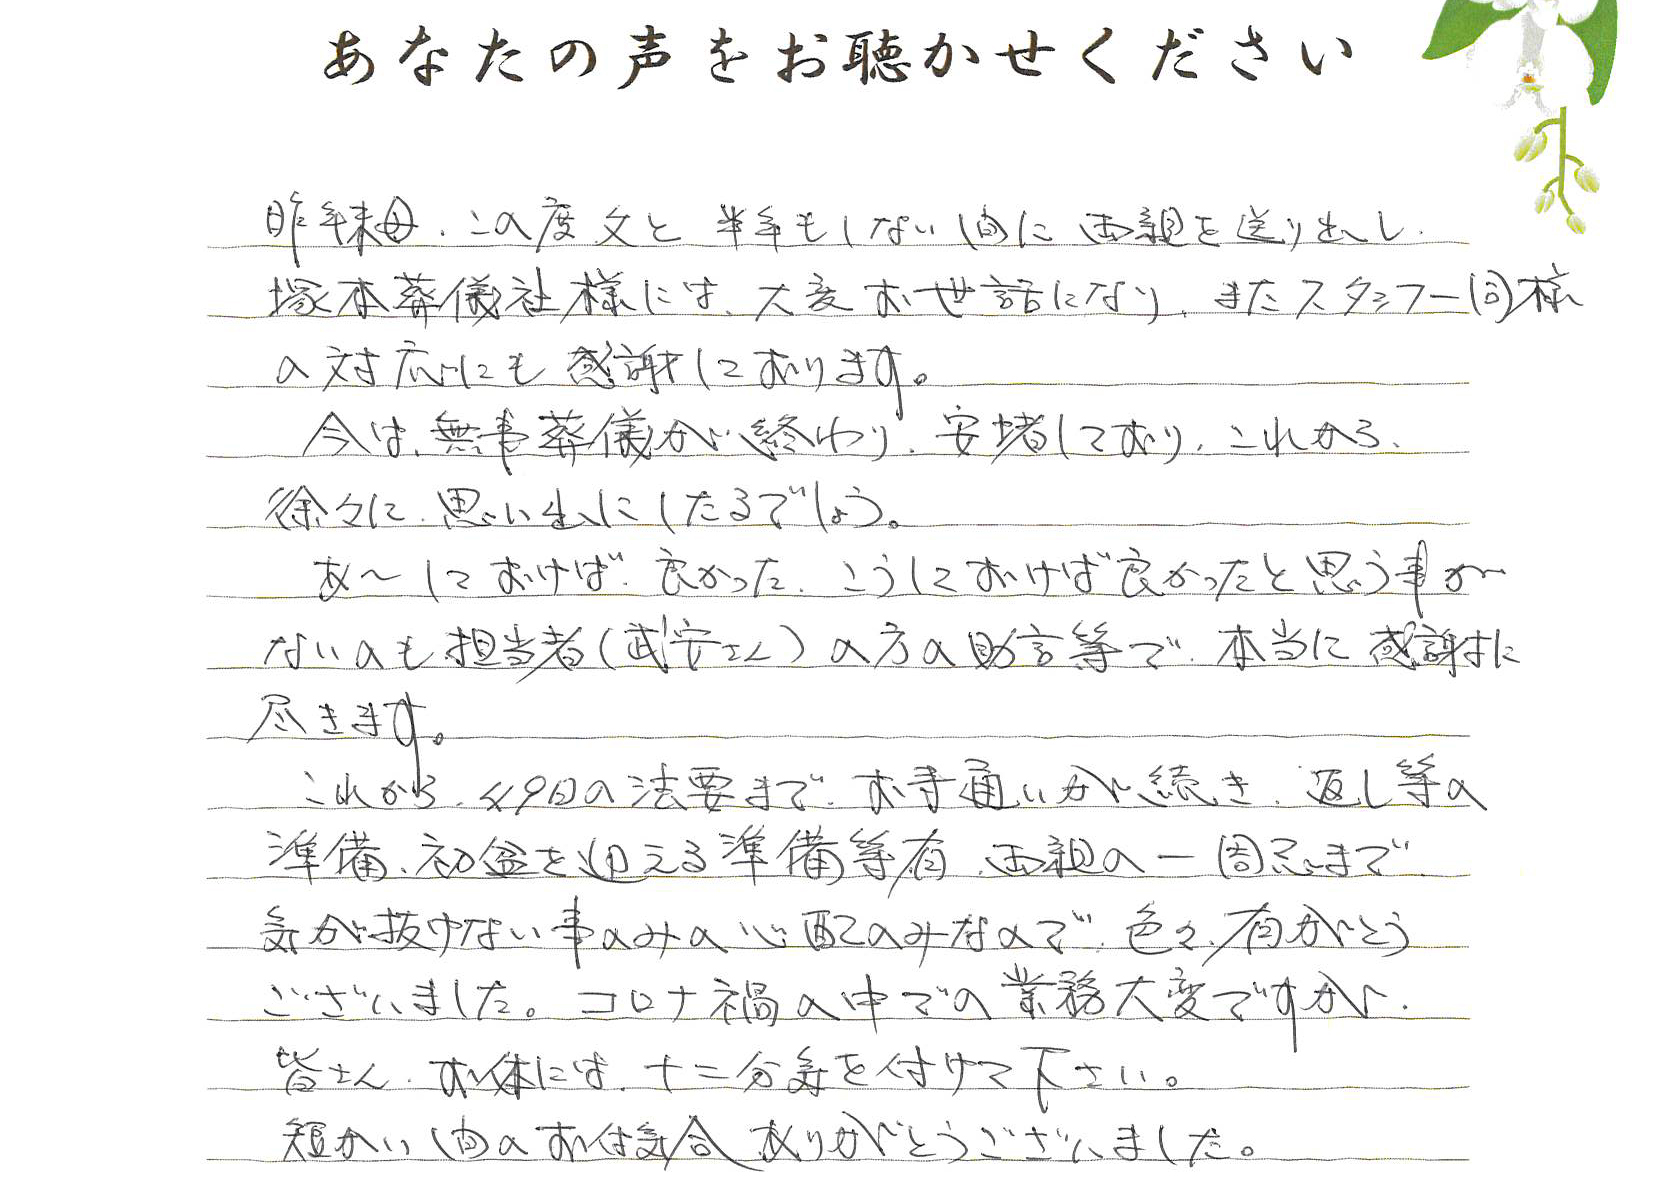 あなたの声をお聴かせください
昨年末母、この度父と半年もしない間に両親を送り出し、
塚本葬儀社様には、大変お世話になり、またスタッフ一同様
の対応にも感謝しております。
今は、無事葬儀が終わり、安堵しており、これから、
徐々に、思い出にしたるでしょう。
あ〜しておけば、良かった、こうしておけば良かったと思う事が
ないのも担当者(武安さん)の方の助言等で、本当に感謝に
尽きます。
これから、49日の法要まで、お寺通いが続き、返し等の
準備、初盆を迎える準備等有、両親の一周忌まで
気が抜けない事のみの心配のみなので、色々、有がとう
ございました。コロナ禍の中での業務大変ですが、
皆さん、お体には、十二分気を付けて下さい。
短かい間のお付合ありがとうございました。